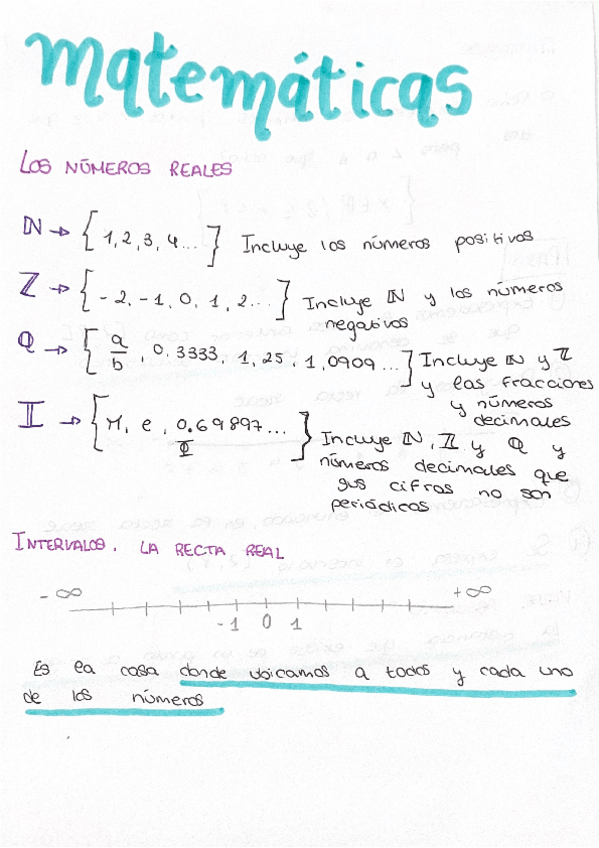 matemáticas
LOS NÚMEROS REALES
ℕ → { 1, 2, 3, 4... } Incluye los números positivos
ℤ → { -2, -1, 0, 1, 2... } Incluye ℕ y los números
negativos
ℚ → { a/b, 0.3333, 1,25, 1,0909... } Incluye ℕ y ℤ
y las fracciones
y números
decimales
𝕀 → { π, e, 0.69897... } Incluye ℕ, ℤ y ℚ y
Φ
números decimales que
sus cifras no son
periódicos
INTERVALOS. LA RECTA REAL
-∞ +∞
-1 0 1
Es la casa donde ubicamos a todos y cada uno
de los números